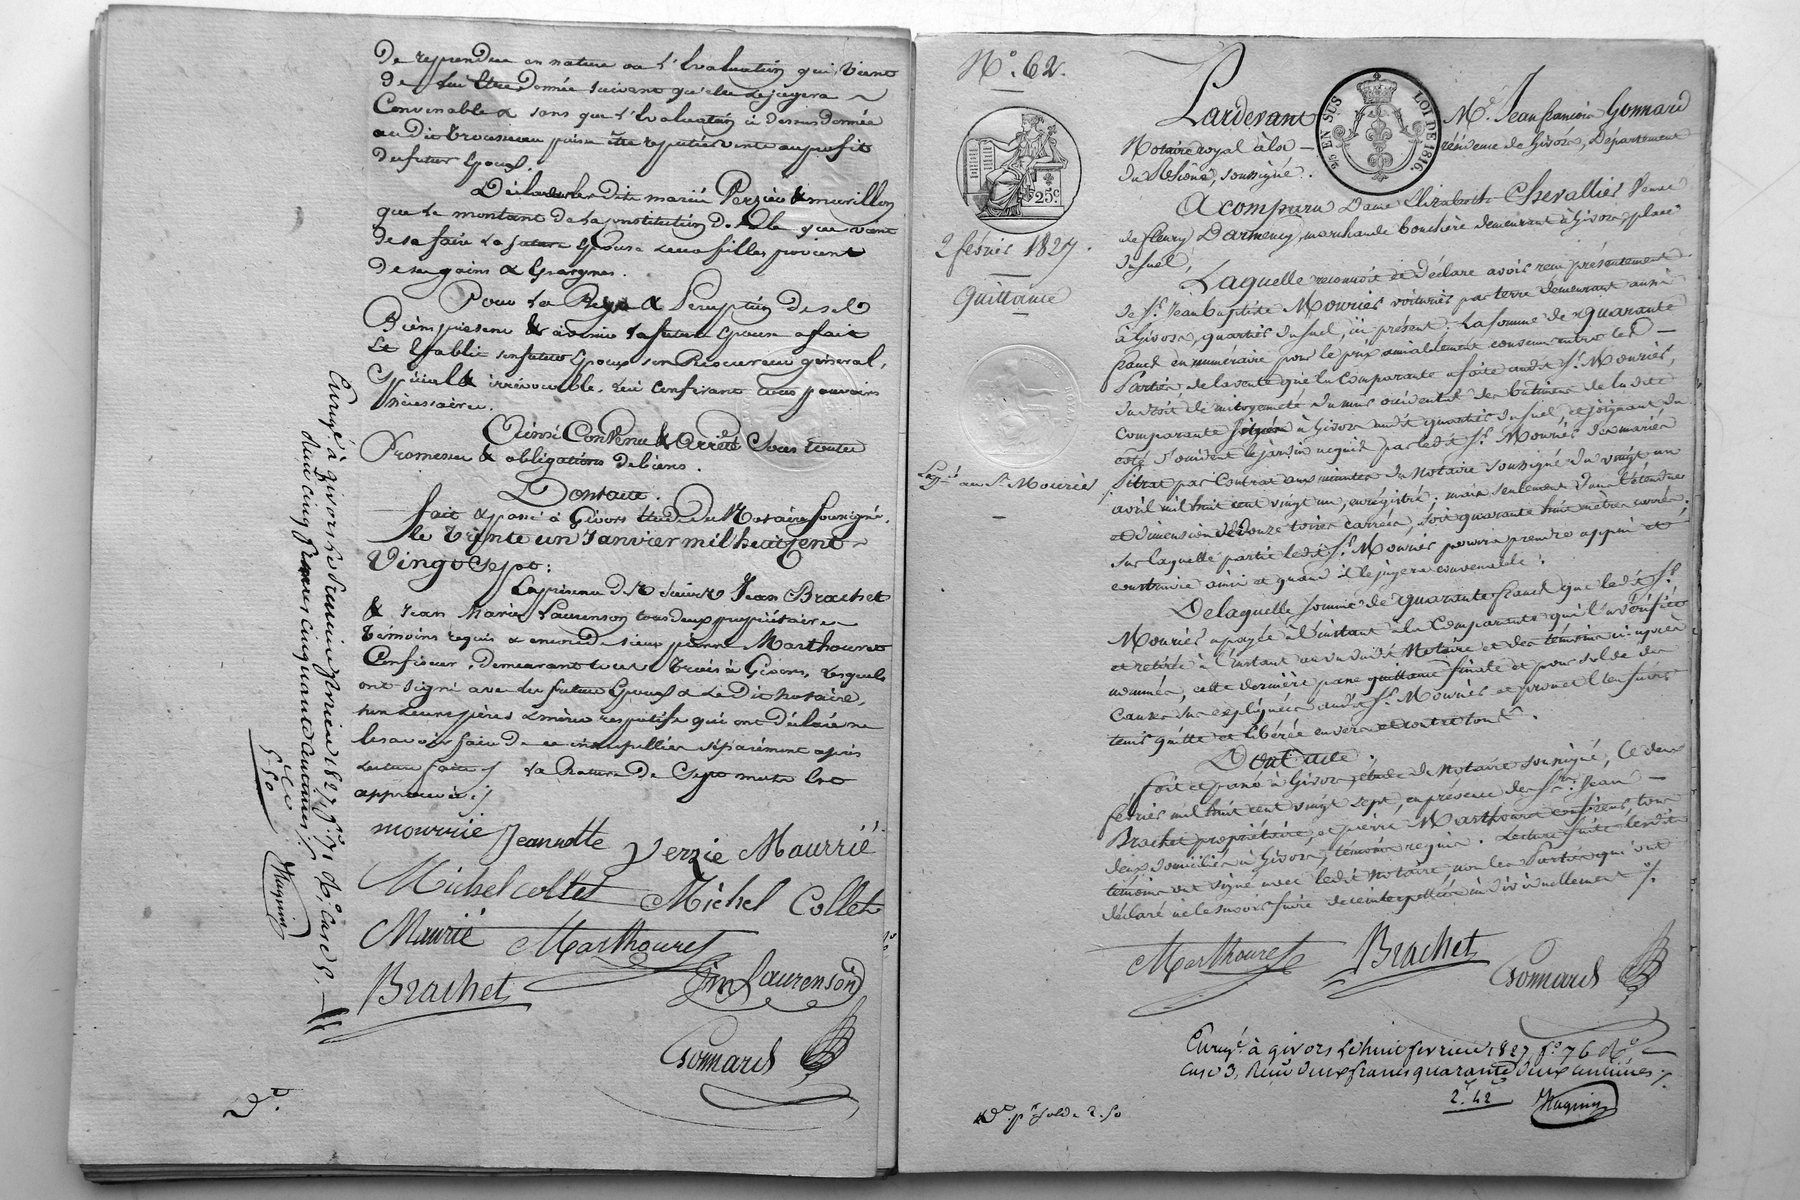 de reprendre en nature ou l'Evaluation qui vient
de lui Etre donnée suivant qu'elle le jugera
Convenable & sans que l'Evaluation ci dessus donnée
au dit trousseau puisse être reputée vente au profit
du futur Epoux.
Déclarent les dits mariés Verzieu & murillon
que le montant de la constitution de Dot que vient
de se faire la future Epouse leur fille provient
de ses gains & Epargnes.
Pour La Régie & Perception des
Biens présens & à venir la future Epouse a fait
Et Etabli son futur Epoux son Procureur général,
Spécial & irrévocable, lui conférant tous pouvoirs
nécessaires.
Ainsi Convenu & Arrêté Sous toutes
Promesses & obligations de biens.
Dont acte.
fait & passé à Givors Etude du Notaire soussigné,
le trente un Janvier mil huit cent
Vingt Sept:
En présence de sieurs Jean Brachet
& Jean Marie Laurenson tous deux propriétaires
témoins requis & encore de sieur pierre Marthouret
Confiseur, demeurant tous trois à Givors, lesquels
ont signé avec les futurs Epoux & le Dit notaire,
non leurs pères & mères respectifs qui ont déclaré ne
le savoir faire de ce interpellés séparément après
lecture faite / La Rature de Sept mots Est
approuvée ://
mourrié Jeannotte Verzie Maurrié
Michel Collet Michel Collet
Maurié Marthouret
Brachet jm Laurenson
Gonnard
Enregé. à givors le fevrier 1827, fo. 71 Ro. Case 5,
cinq francs cinquante centimes
5. 50
Magnin
Do.
No. 62.
25 EN SUS LOI DE 1816.
25c
2 février 1827.
Quittance
Exp.é au Sr. Mouriès
Pardevant Me. Jean françois Gonnard
Notaire royal à la résidence de Givors, département
du Rhône, soussigné.
A comparu Dame Elizabeth Chevallier Veuve
de fleury Darmency, marchande bouchère demeurant à Givors place
du suel,
Laquelle reconnoit et déclare avoir reçu présentement
de Sr. Jean Baptiste Mouriès voiturier par terre demeurant aussi
à Givors, quartier du suel, ici présent, La somme de quarante
francs en numéraire pour le prix amiablement convenu entre les
Parties de la vente que la Comparante a faite audit Sr. Mouriès,
du droit de mitoyenneté du mur occidental des bâtimens de la dite
Comparante à Givors audit quartier du suel, et joignant du
coté d'occident le jardin acquis par ledit Sr. Mouriès des mariés
Sitrat par Contrat aux minutes du Notaire soussigné du vingt un
avril mil huit cent vingt un, enrégistré; mais seulement d'une étendue
et dimension de douze toises carrées, soit quarante huit mètres carrés,
sur laquelle partie ledit Sr. Mouriès pourra prendre appui et
construire ainsi et quand il le jugera convenable.
De laquelle somme de quarante francs que ledit Sr.
Mouriès a payée à l'instant à la Comparante qui l'a vérifiée
et retirée à l'instant au vu dudit Notaire et des témoins ci-après
nommés, cette dernière passe quittance finale et pour solde des
causes sus expliquées audit Sr. Mouriès et promet l'en faire
tenir quitte et libérée envers et contre tous.
Dont acte.
fait et passé à Givors, étude du Notaire soussigné, le deux
fevrier mil huit cent vingt sept, en présence de Srs. Jean
Brachet propriétaire, et pierre Marthouret confiseur, tous
deux domiciliés à Givors, témoins requis. Lecture faite lesdits
témoins ont signé avec ledit Notaire, non les Parties qui ont
déclaré ne le savoir faire de ce interpellées individuellement ./.
Marthouret Brachet Gonnard
Enregé. à givors le huit fevrier 1827, fo. 76 Ro.
Case 3, Reçu deux francs quarante deux centimes ./.
2. 42
Magnin